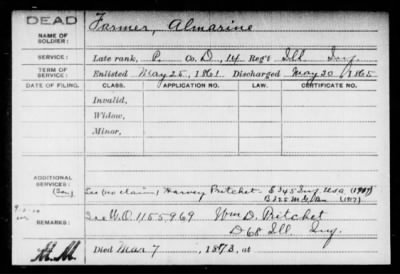 DEAD
NAME OF SOLDIER: Farmer, Almarine
SERVICE: Late rank, P. Co. D, 14 Reg't Ill. Inf.
TERM OF SERVICE: Enlisted May 25, 1861 Discharged May 20, 1865
DATE OF FILING. CLASS. APPLICATION NO. LAW. CERTIFICATE NO.
Invalid,
Widow,
Minor,
ADDITIONAL SERVICES:
(Son) See (no claim) Harvey Pritchet E 345 Inf. U.S.A. (1917)
(1917)
REMARKS: See W.O. 1155969 Wm D. Pritchet
D 68 Ill. Inf.
Died Mar 7, 1873, at